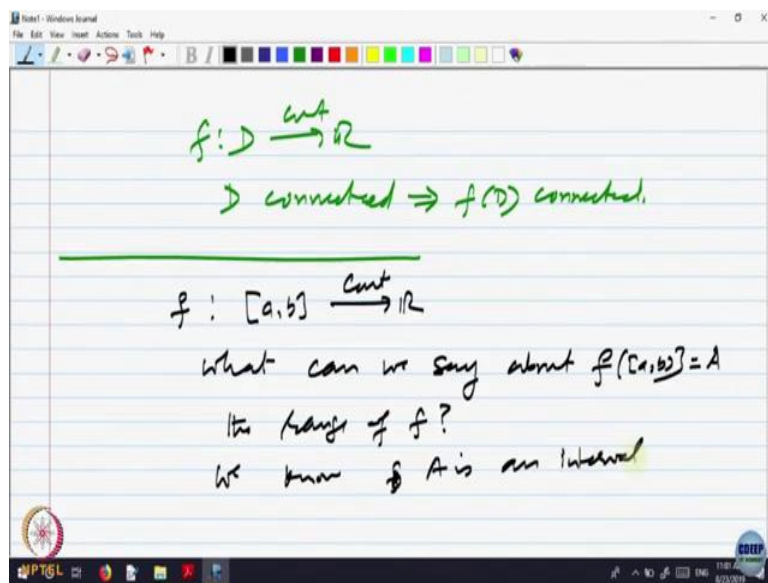 Note1 - Windows Journal
File Edit View Insert Actions Tools Help
f : D cont→ ℝ
D connected ⇒ f(D) connected.
f : [a,b] cont→ ℝ
What can we say about f([a,b]) = A
the range of f?
We know A is an interval
NPTEL
CDEEP
ENG
6/23/2019